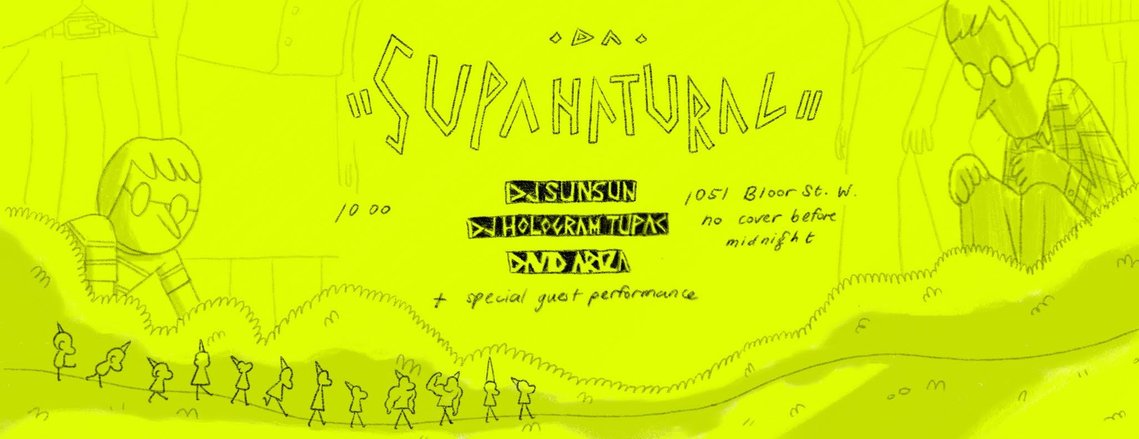 DA
"SUPANATURAL"
DJ SUNSUN
DJ HOLOGRAM TUPAC
ARIZA
+ special guest performance
10 00
1051 Bloor St. W.
no cover before
midnight